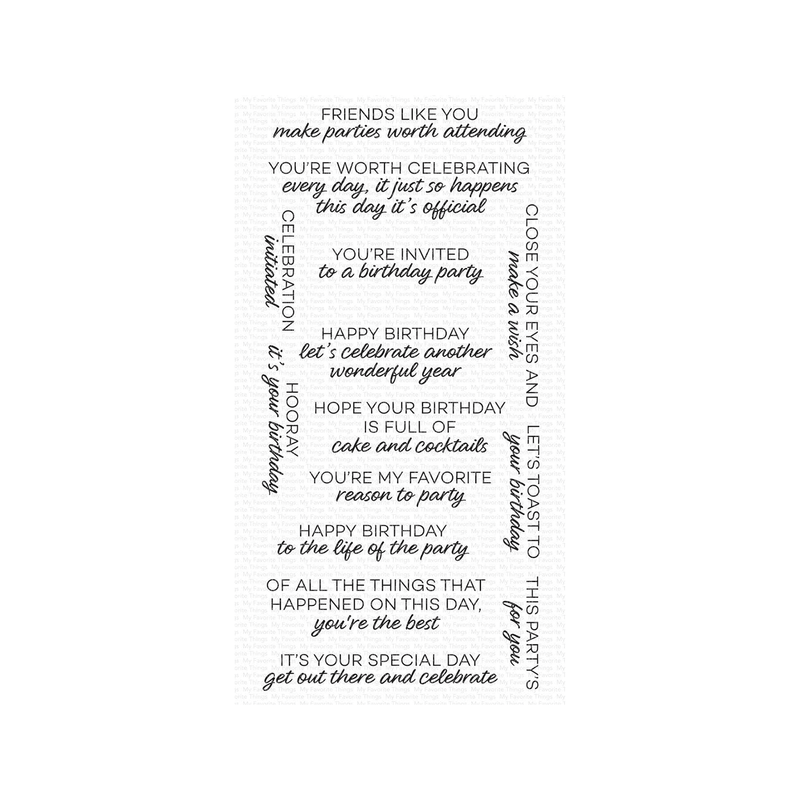 FRIENDS LIKE YOU
make parties worth attending
YOU'RE WORTH CELEBRATING
every day, it just so happens
this day it's official
CELEBRATION
initiated
YOU'RE INVITED
to a birthday party
CLOSE YOUR EYES AND
make a wish
HAPPY BIRTHDAY
let's celebrate another
wonderful year
HOORAY
it's your birthday
HOPE YOUR BIRTHDAY
IS FULL OF
cake and cocktails
LET'S TOAST TO
your birthday
YOU'RE MY FAVORITE
reason to party
HAPPY BIRTHDAY
to the life of the party
OF ALL THE THINGS THAT
HAPPENED ON THIS DAY,
you're the best
THIS PARTY'S
for you
IT'S YOUR SPECIAL DAY
get out there and celebrate